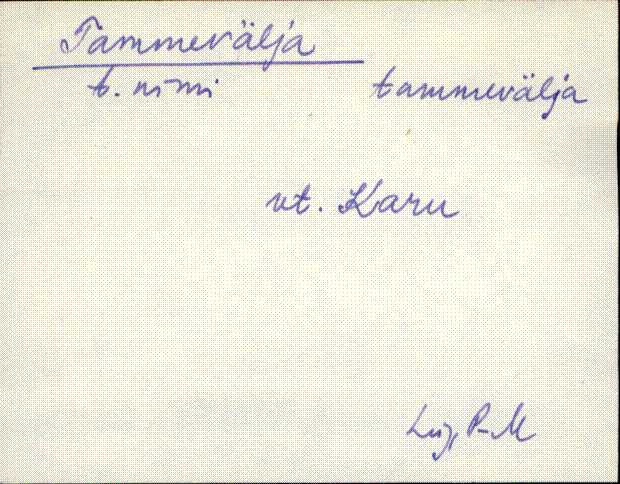 Tammevälja
t. nimi tammevälja
vt. Karu
P-M